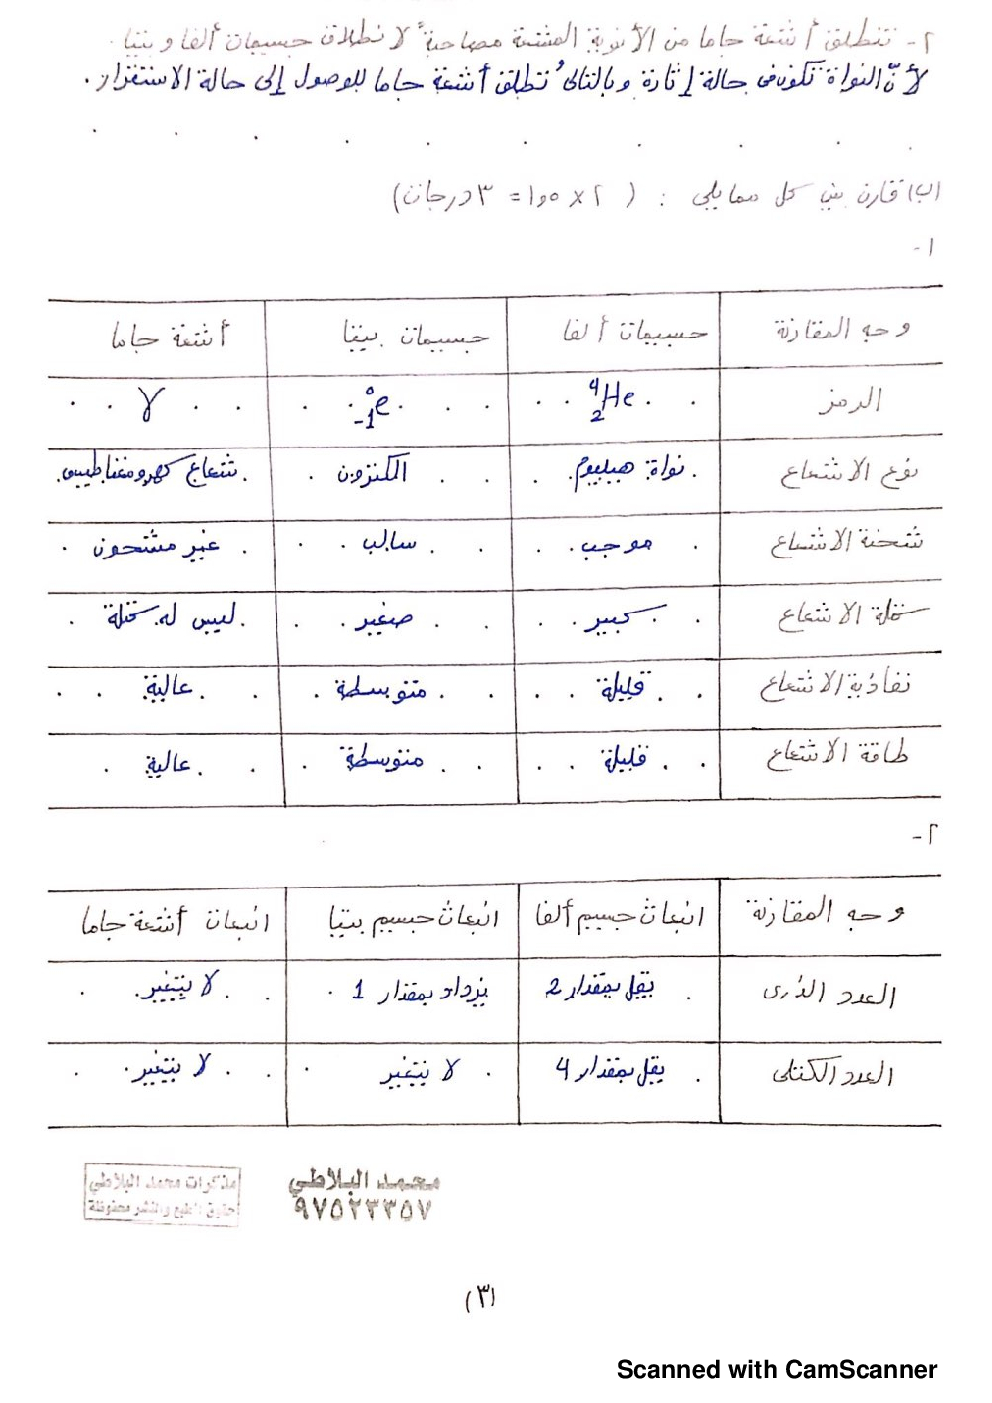 ٢- تنطلق أشعة جاما من الأنوية المشعة مصاحبةً لانطلاق جسيمات ألفا وبيتا.
لأنّ النواة تكون في حالة إثارة وبالتالي تُطلق أشعة جاما للوصول إلى حالة الاستقرار.
(ب) قارن بين كل مما يلي : ( ٢ × ١٫٥ = ٣ درجات)
١-
وجه المقارنة جسيمات ألفا جسيمات بيتا أشعة جاما
الرمز ⁴₂He ⁰₋₁e γ
نوع الاشعاع نواة هيليوم الكترون شعاع كهرومغناطيسي
شحنة الاشعاع موجب سالب غير مشحون
كتلة الاشعاع كبير صغير ليس له كتلة
نفاذية الاشعاع قليلة متوسطة عالية
طاقة الاشعاع قليلة متوسطة عالية
٢-
وجه المقارنة انبعاث جسيم ألفا انبعاث جسيم بيتا انبعاث أشعة جاما
العدد الذري يقل بمقدار 2 يزداد بمقدار 1 لا يتغير
العدد الكتلي يقل بمقدار 4 لا يتغير لا يتغير
محمد البلاطي
٩٧٥٢٣٣٥٧
مذكرات محمد البلاطي
حقوق الطبع والنشر محفوظة
(٣)
Scanned with CamScanner